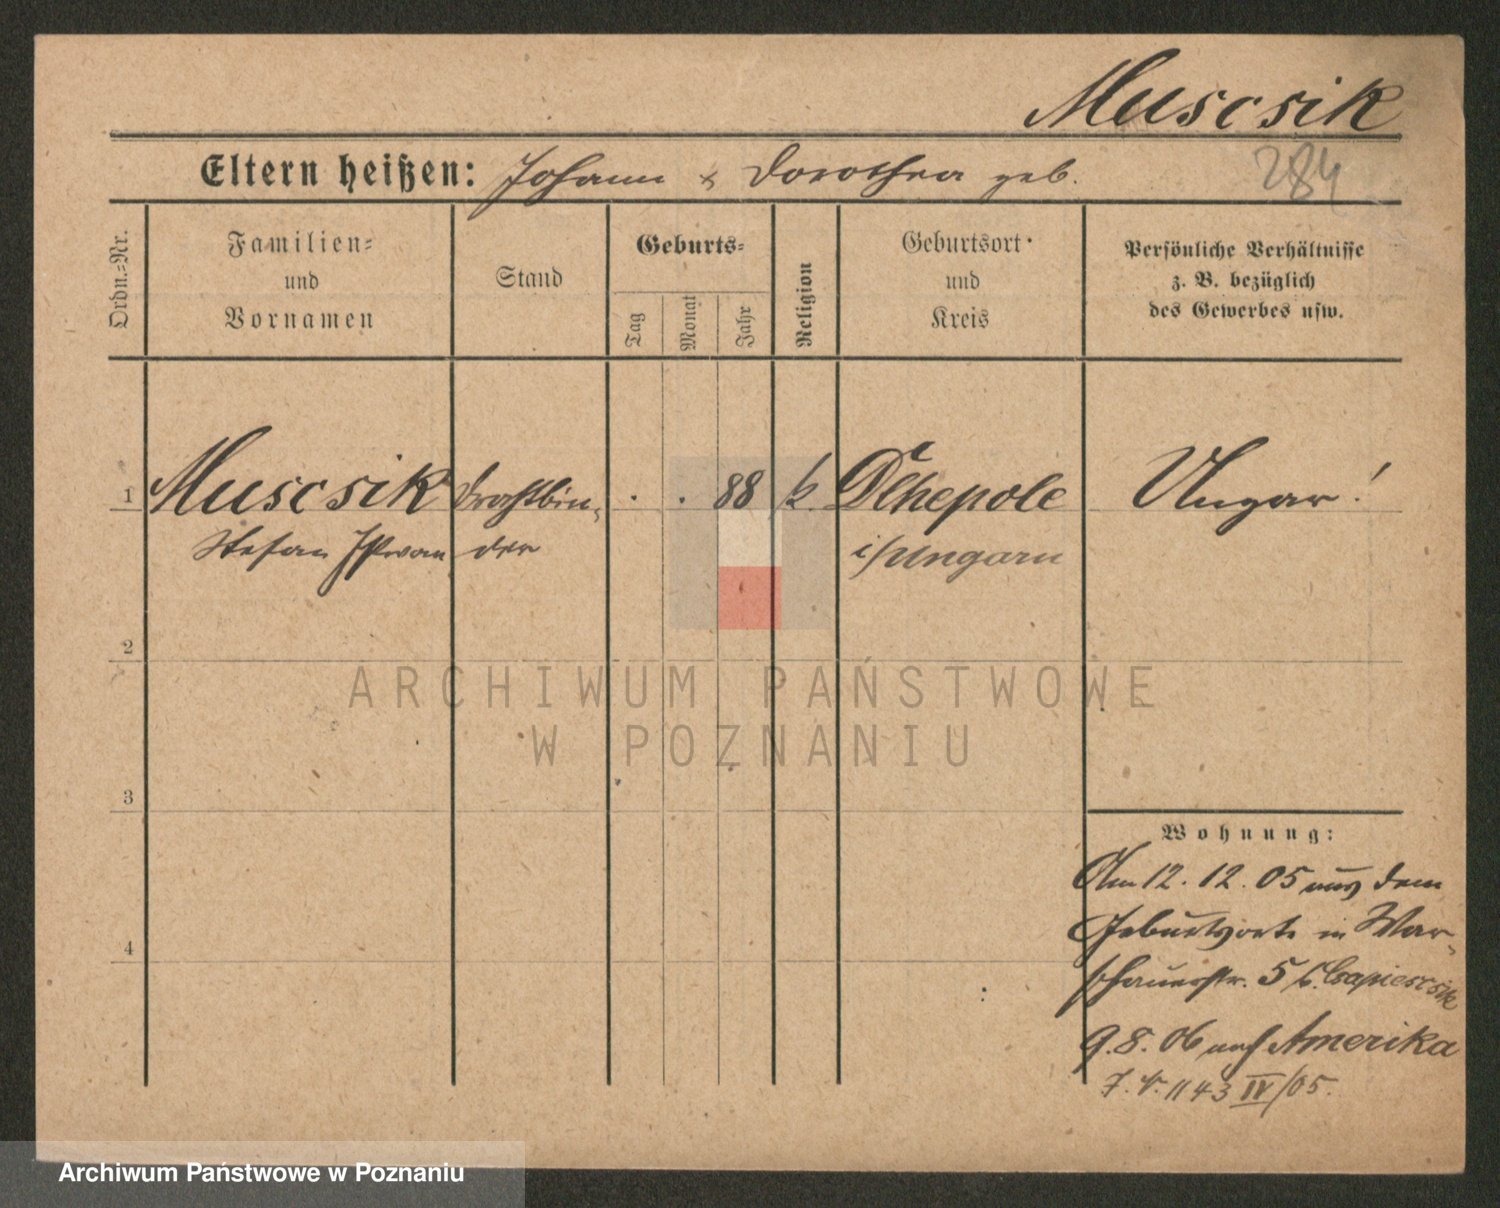 Muscsik
284
Eltern heißen: Johann & Dorothea geb.
Ordn.-Nr.
Familien-
und
Vornamen
Stand
Geburts-
Tag
Monat
Jahr
Religion
Geburtsort
und
Kreis
Persönliche Verhältnisse
z. B. bezüglich
des Gewerbes usw.
1 Muscsik Drahtbin- . . 88 k. Dlhepole Ungar!
Stefan der i/Ungarn
2
3
4
ARCHIWUM PAŃSTWOWE
W POZNANIU
Wohnung:
Am 12. 12. 05 aus dem
Geburtsorte in War-
schauerstr. 5 b.
9.8.06 nach Amerika
J. V. 1143 IV/05.
Archiwum Państwowe w Poznaniu